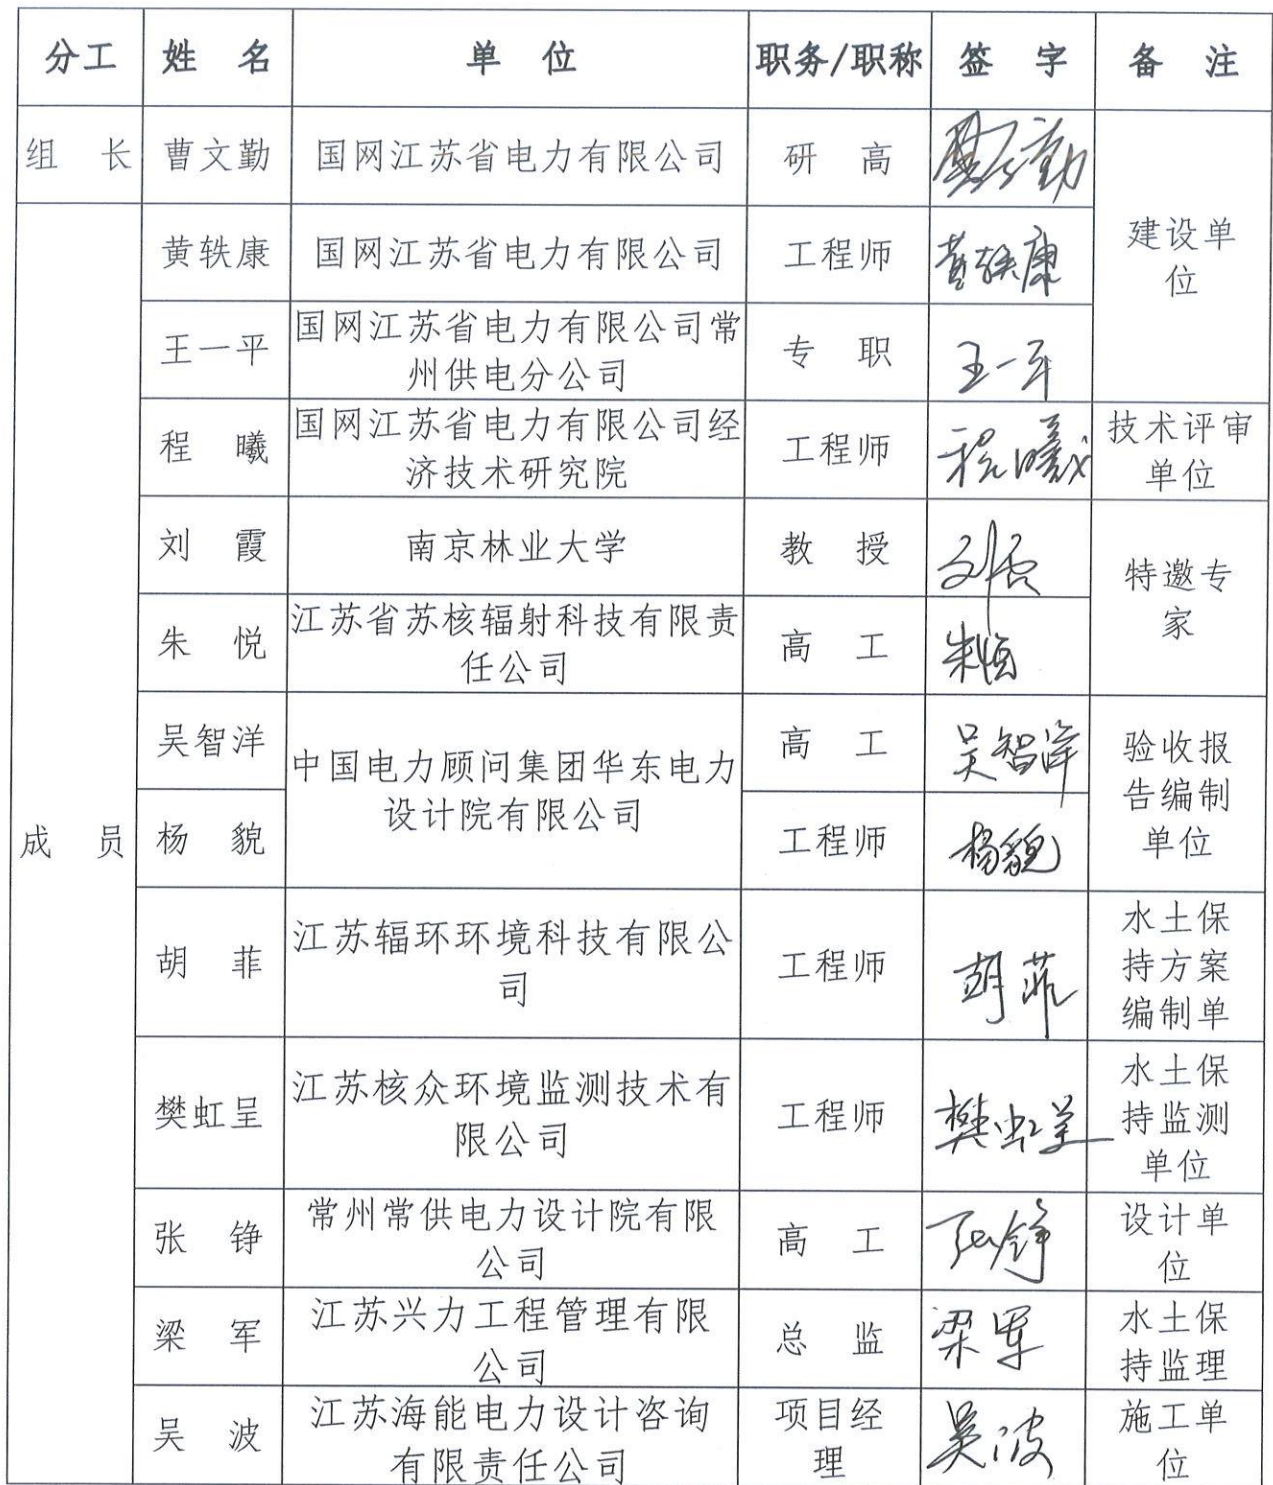 分工 姓 名 单 位 职务/职称 签 字 备 注
组 长 曹文勤 国网江苏省电力有限公司 研 高 曹文勤
建设单
位
成 员
黄轶康 国网江苏省电力有限公司 工程师 黄轶康
王一平 国网江苏省电力有限公司常
州供电分公司 专 职 王一平
程 曦 国网江苏省电力有限公司经
济技术研究院 工程师 程曦 技术评审
单位
刘 霞 南京林业大学 教 授 刘霞
特邀专
家
朱 悦 江苏省苏核辐射科技有限责
任公司 高 工 朱悦
吴智洋 高 工 吴智洋
中国电力顾问集团华东电力
设计院有限公司
验收报
告编制
单位
杨 貌 工程师 杨貌
胡 菲 江苏辐环环境科技有限公
司 工程师 胡菲 水土保
持方案
编制单
樊虹呈 江苏核众环境监测技术有
限公司 工程师 樊虹呈 水土保
持监测
单位
张 铮 常州常供电力设计院有限
公司 高 工 张铮 设计单
位
梁 军 江苏兴力工程管理有限
公司 总 监 梁军 水土保
持监理
吴 波 江苏海能电力设计咨询
有限责任公司 项目经
理 吴波 施工单
位